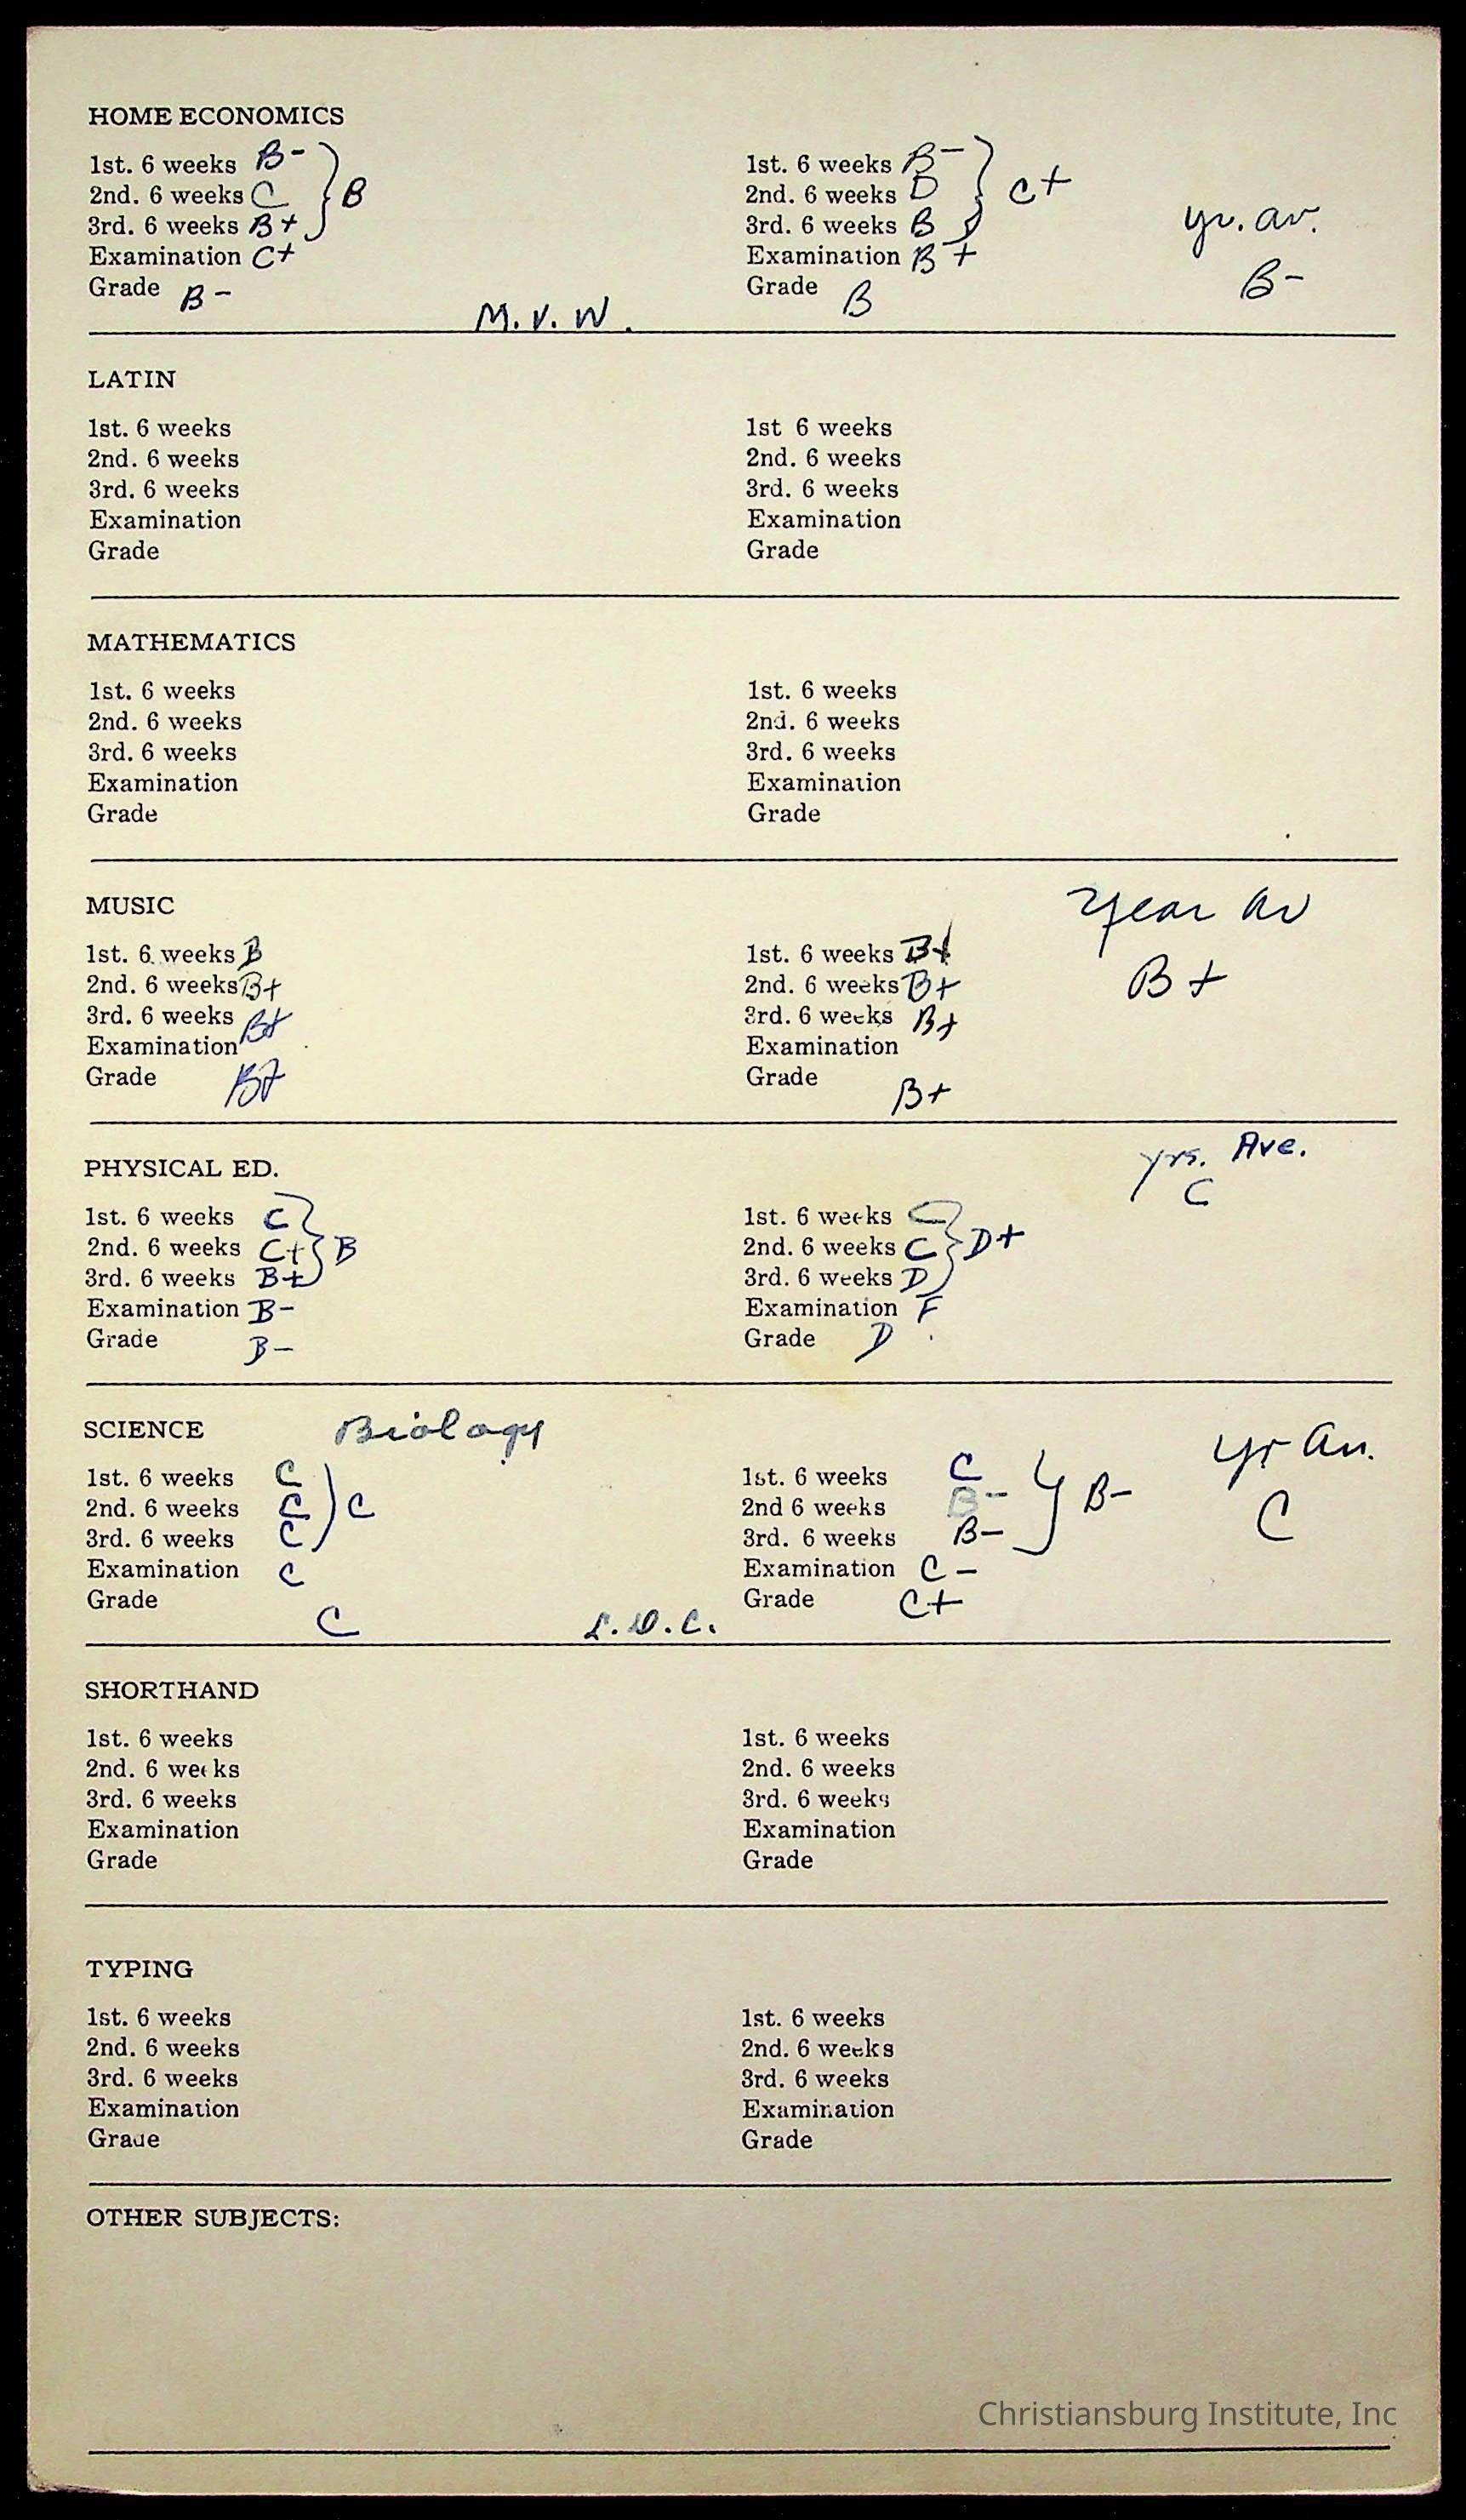 HOME ECONOMICS
1st. 6 weeks B- 1st. 6 weeks B-
2nd. 6 weeks C } B 2nd. 6 weeks D } C+
3rd. 6 weeks B+ 3rd. 6 weeks B yr. av.
Examination C+ Examination B+ B-
Grade B- Grade B
M.V.W.
LATIN
1st. 6 weeks 1st 6 weeks
2nd. 6 weeks 2nd. 6 weeks
3rd. 6 weeks 3rd. 6 weeks
Examination Examination
Grade Grade
MATHEMATICS
1st. 6 weeks 1st. 6 weeks
2nd. 6 weeks 2nd. 6 weeks
3rd. 6 weeks 3rd. 6 weeks
Examination Examination
Grade Grade
MUSIC Year Av
1st. 6 weeks B 1st. 6 weeks B+
2nd. 6 weeks B+ 2nd. 6 weeks B+ B+
3rd. 6 weeks B+ 3rd. 6 weeks B+
Examination Examination
Grade B+ Grade B+
PHYSICAL ED. yrs. Ave.
C
1st. 6 weeks C 1st. 6 weeks C
2nd. 6 weeks C+ } B 2nd. 6 weeks C } D+
3rd. 6 weeks B+ 3rd. 6 weeks D
Examination B- Examination F
Grade B- Grade D
SCIENCE Biology yr Av.
1st. 6 weeks C 1st. 6 weeks C
2nd. 6 weeks C ) C 2nd 6 weeks B- } B- C
3rd. 6 weeks C 3rd. 6 weeks B-
Examination C Examination C-
Grade C Grade C+
L.D.C.
SHORTHAND
1st. 6 weeks 1st. 6 weeks
2nd. 6 weeks 2nd. 6 weeks
3rd. 6 weeks 3rd. 6 weeks
Examination Examination
Grade Grade
TYPING
1st. 6 weeks 1st. 6 weeks
2nd. 6 weeks 2nd. 6 weeks
3rd. 6 weeks 3rd. 6 weeks
Examination Examination
Grade Grade
OTHER SUBJECTS:
Christiansburg Institute, Inc